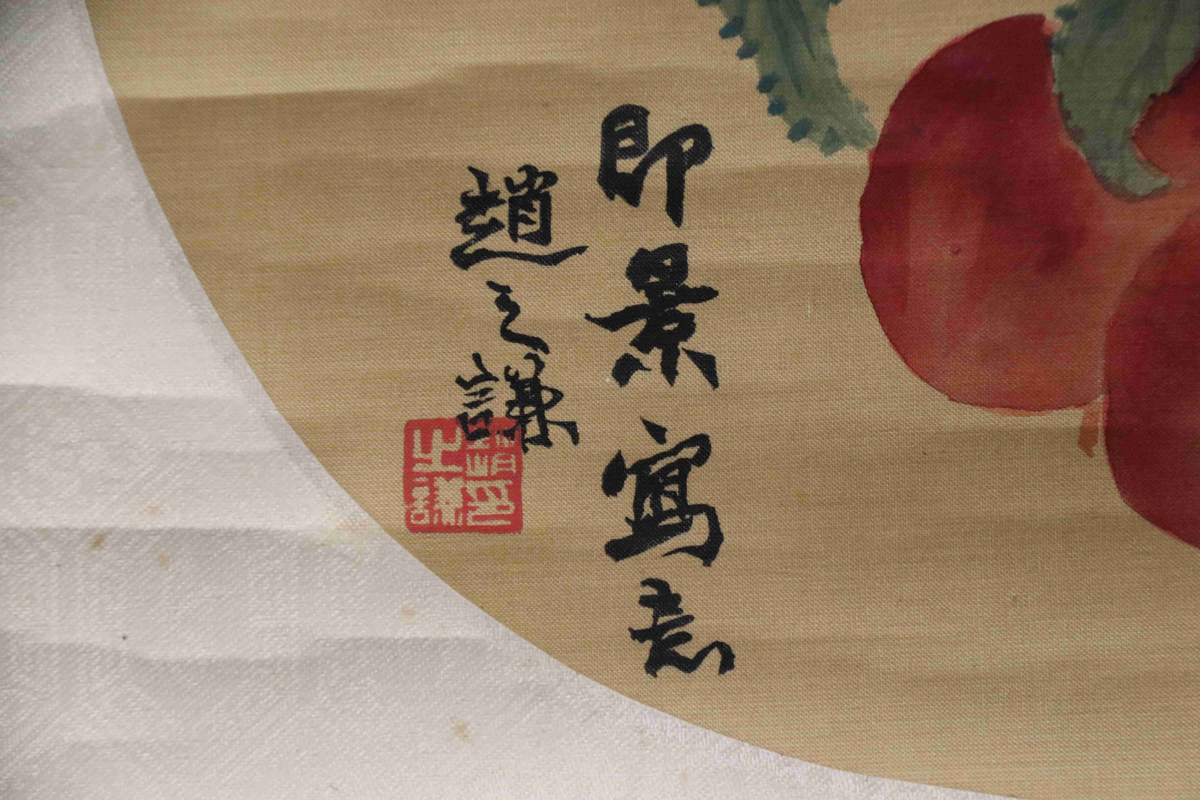 即景寫意
趙之謙
之謙印